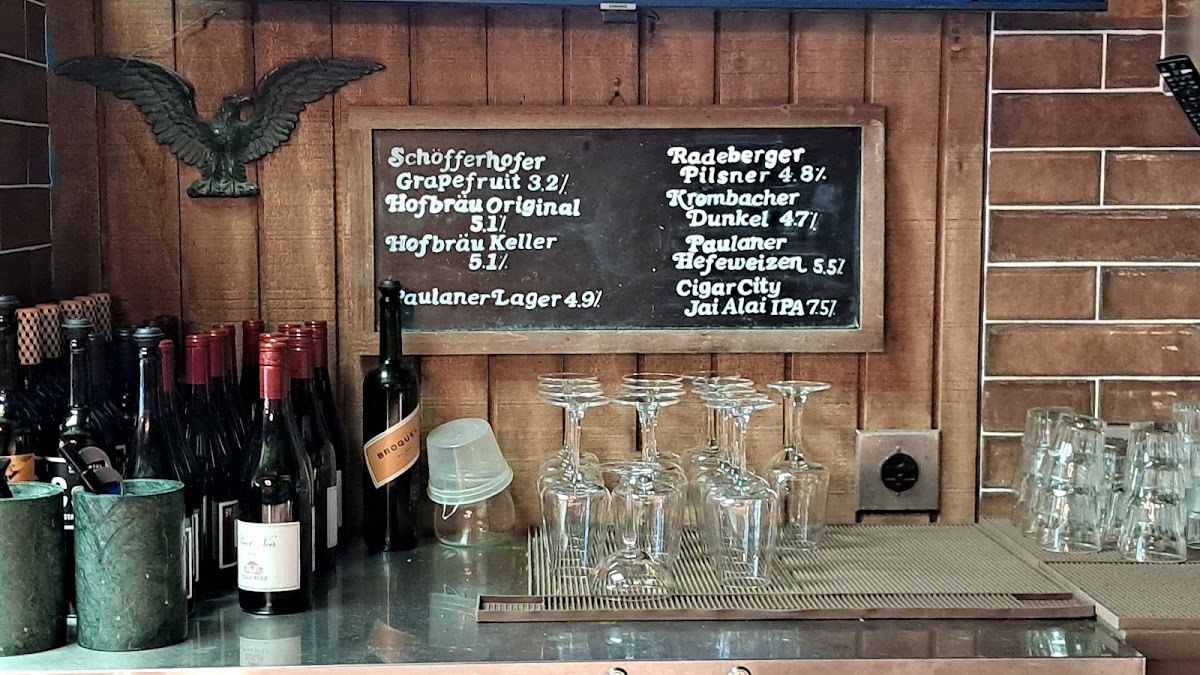 Schöfferhofer
Grapefruit 3.2%
Hofbräu Original
5.1%
Hofbräu Keller
5.1%
Paulaner Lager 4.9%
Radeberger
Pilsner 4.8%
Krombacher
Dunkel 4.7%
Paulaner
Hefeweizen 5.5%
Cigar City
Jai Alai IPA 7.5%
BROQUEL
Pinot Noir